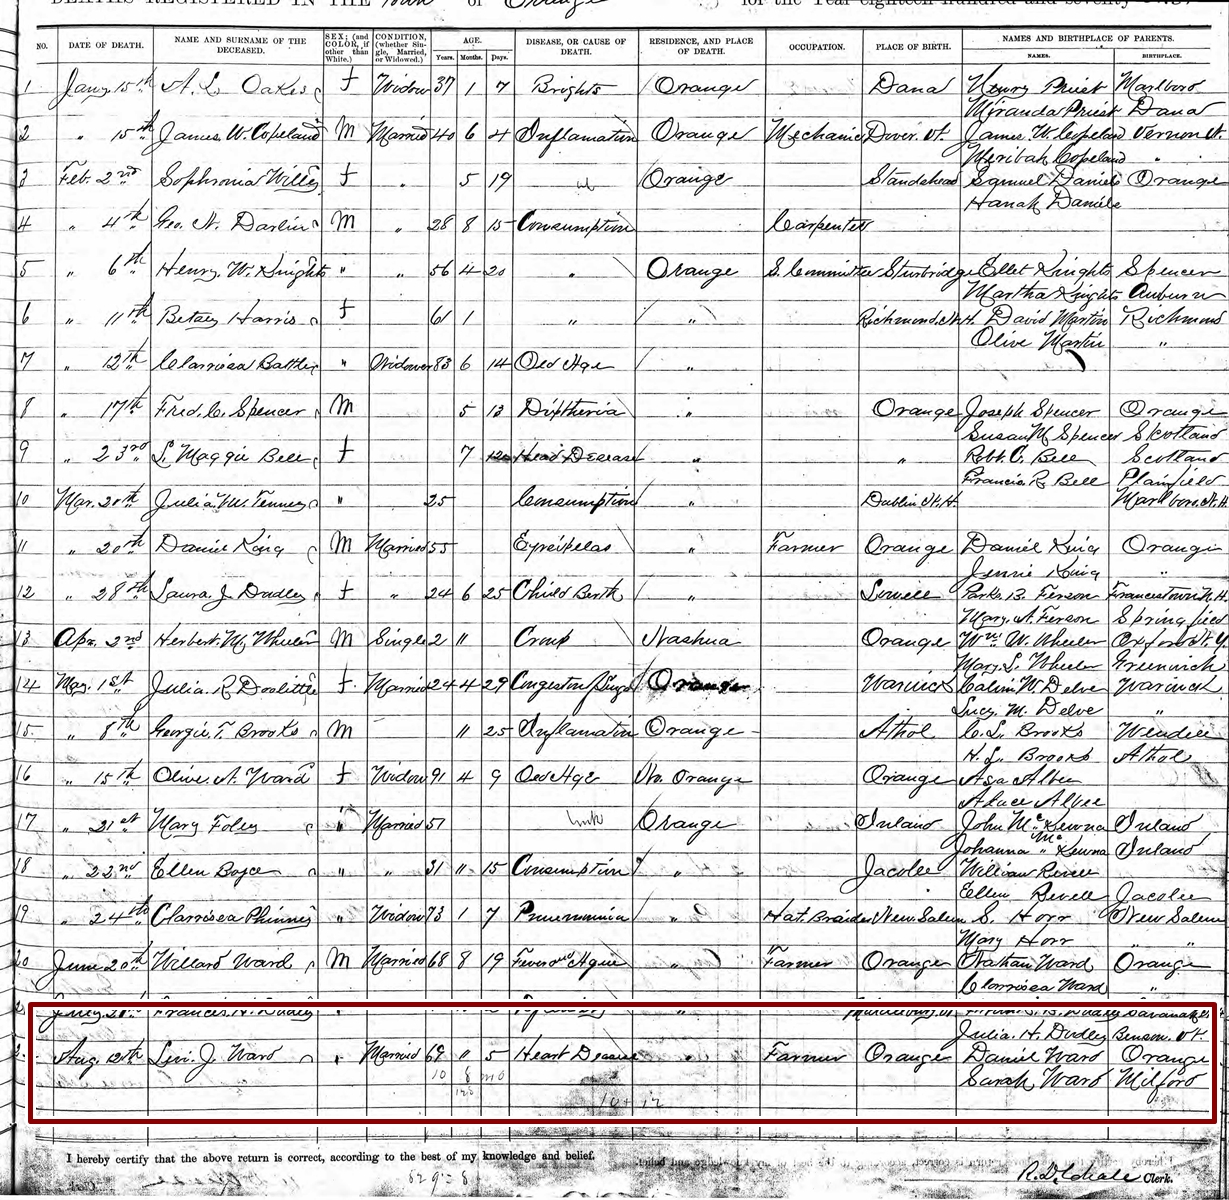 DEATHS REGISTERED IN THE Town of Orange for the Year eighteen hundred and seventy two.
NO. DATE OF DEATH. NAME AND SURNAME OF THE DECEASED. SEX; (and COLOR, if other than White.) CONDITION, (whether Single, Married, or Widowed.) AGE. Years. Months. Days. DISEASE, OR CAUSE OF DEATH. RESIDENCE, AND PLACE OF DEATH. OCCUPATION. PLACE OF BIRTH. NAMES AND BIRTHPLACE OF PARENTS. NAMES. BIRTHPLACE.
1 Jany 15th A. L. Oakes f Widow 37 1 7 Brights Orange Dana Henry Priest Marlboro
Miranda Priest Dana
2 " 15th James W. Copeland M Married 40 6 4 Inflamation Orange Mechanic Dover Vt. James W. Copeland Vernon Vt.
Meribah Copeland "
3 Feb. 2nd Sophronia Willey f " 5 19 Orange Standstead Samuel Daniels Orange
Hanah Daniels
4 " 4th Geo. N. Darlin M " 28 8 15 Consumption Carpenter
5 " 6th Henry W. Knights " " 56 4 20 " Orange S. Committee Sturbridge Ellet Knights Spencer
Martha Knights Auburn
6 " 11th Betsey Harris f 61 1 " " Richmond N.H. David Martin Richmond
Olive Martin "
7 " 12th Clarrissa Battle " Widower 83 6 14 Old Age "
8 " 17th Fred. C. Spencer M 5 13 Diptheria " Orange Joseph Spencer Orange
Susan M Spencer Skotland
9 " 23rd L. Maggie Bell f 7 Head Desease " " Robt. C. Bell Scotland
Francis R Bell Plainfield
10 Mar. 20th Julia. M. Tenney " 25 Consumption " Dublin N.H. Marlboro. N.H.
11 " 20th Daniel King M Married 55 Eyreipelas " Farmer Orange Daniel King Orange
Jennie King "
12 " 28th Laura. J Dudley f " 24 6 25 Child Berth " Lowell Parks. B. Ferson Francistown N.H.
Mary. A. Ferson Springfield
13 Apr. 2nd Herbert M. Wheeler M Single 2 11 Croup Nashua Orange Wm W. Wheeler Oxford N.Y.
Mary. L. Wheeler Greenwich
14 May. 1st Julia. R Doolittle f Married 24 4 29 Congeston Lungs Orange Warwick Calvin W. Delve Warwick
Lucy. M. Delve "
15. " 8th Georgie T. Brooks M 11 25 Inflamation Orange Athol C. L. Brooks Wendell
H. L. Brooks Athol
16 " 15th Olive. A. Ward f Widow 91 4 9 Old Age No. Orange Orange Asa Albee
Alace Albee
17 " 21st Mary Foley " Married 51 Orange Inland John McKewna Inland
Johanna McKewna Inland
18 " 22nd Ellen Boyce " " 31 11 15 Consumption " Jacolee William Revell
Ellen Revell Jacolee
19 " 24th Clarrisea Phinney " Widow 73 1 7 Pnuemonia " Hat. Braider New. Salem S. Horr New Salem
Mary Horr " "
20 June 20th Willard Ward M Married 68 8 19 Fever and Ague " Farmer Orange Nathan Ward Orange
Clarrissa Ward "
July 21st Frances. H. Dudley Middlebury Vt. Dudley Savanah
Julia. H. Dudley Benson. Vt.
Aug. 20th Levi. J. Ward " Married 69 11 5 Heart Desease " Farmer Orange Daniel Ward Orange
10 8 mo Sarah Ward Milford
10 + 12
I hereby certify that the above return is correct, according to the best of my knowledge and belief.
Clerk.